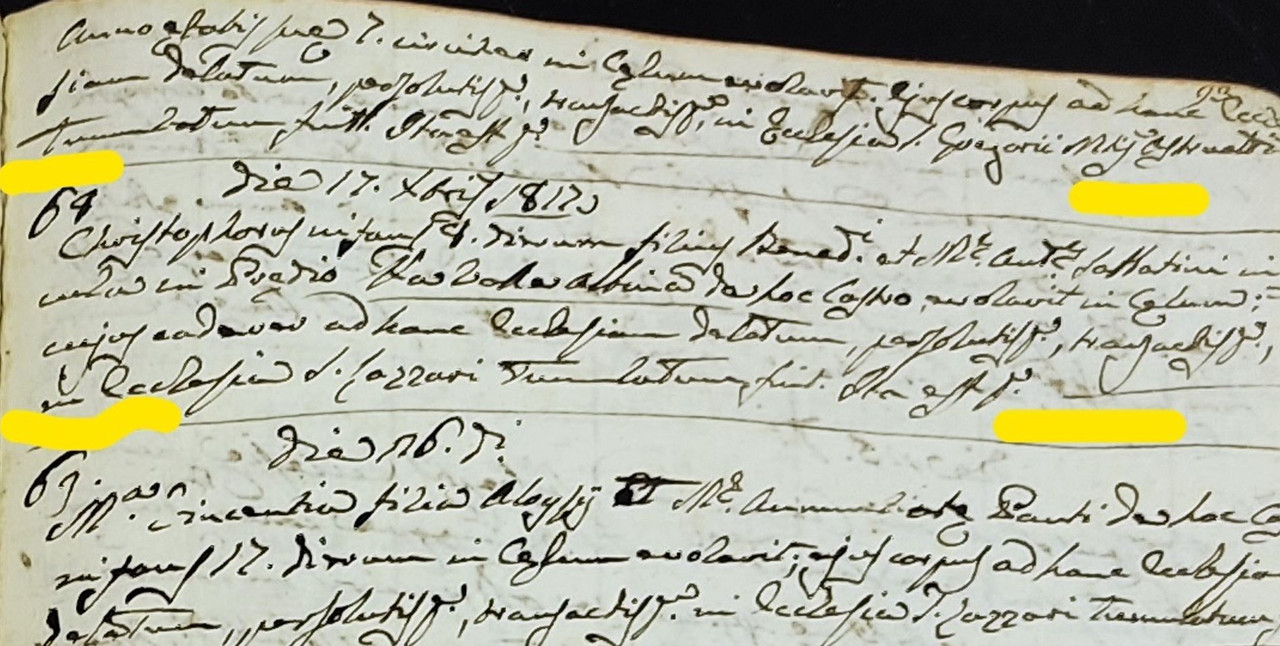 Anno etatis suæ 7. circiter in Cęlum evolavit. Ejus corpus ad hanc Eccle
siam delatum, persolutis ss., transactis ss., in Ecclesia S. Gregorii
Tumulatum fuit. Ita est ss.
Die 17. Xbris 1817
64
Christophorus infans 4. dierum filius Bened.i et M.æ Ant.æ in
in Prędio Valle Albina de hoc Castro, evolavit in Cęlum;
cujus cadaver ad hanc Ecclesiam delatum, persolutis ss., transactis ss.,
in Ecclesia S. Lazzari Tumulatum fuit. Ita est ss.
Die 26. di
63.
M.a Vincentia filia Aloysij et M.æ Annuntiatę Panti de hoc Ca
infans 17. dierum in Cęlum evolavit; ejus corpus ad hanc Ecclesia
delatum, persolutis ss., transactis ss. in Ecclesia S. Lazzari Tumulatum